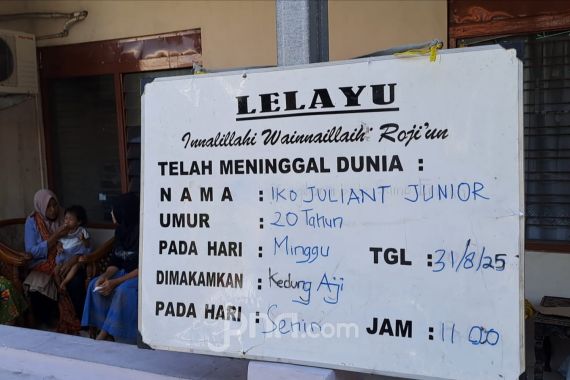 LELAYU
Innalillahi Wainnaillaih Roji'un
TELAH MENINGGAL DUNIA :
NAMA : IKO JULIANT JUNIOR
UMUR : 20 Tahun
PADA HARI : Minggu TGL : 31/8/25
DIMAKAMKAN : Kedung Aji
PADA HARI : Senin JAM : 11 00
JPNN.com